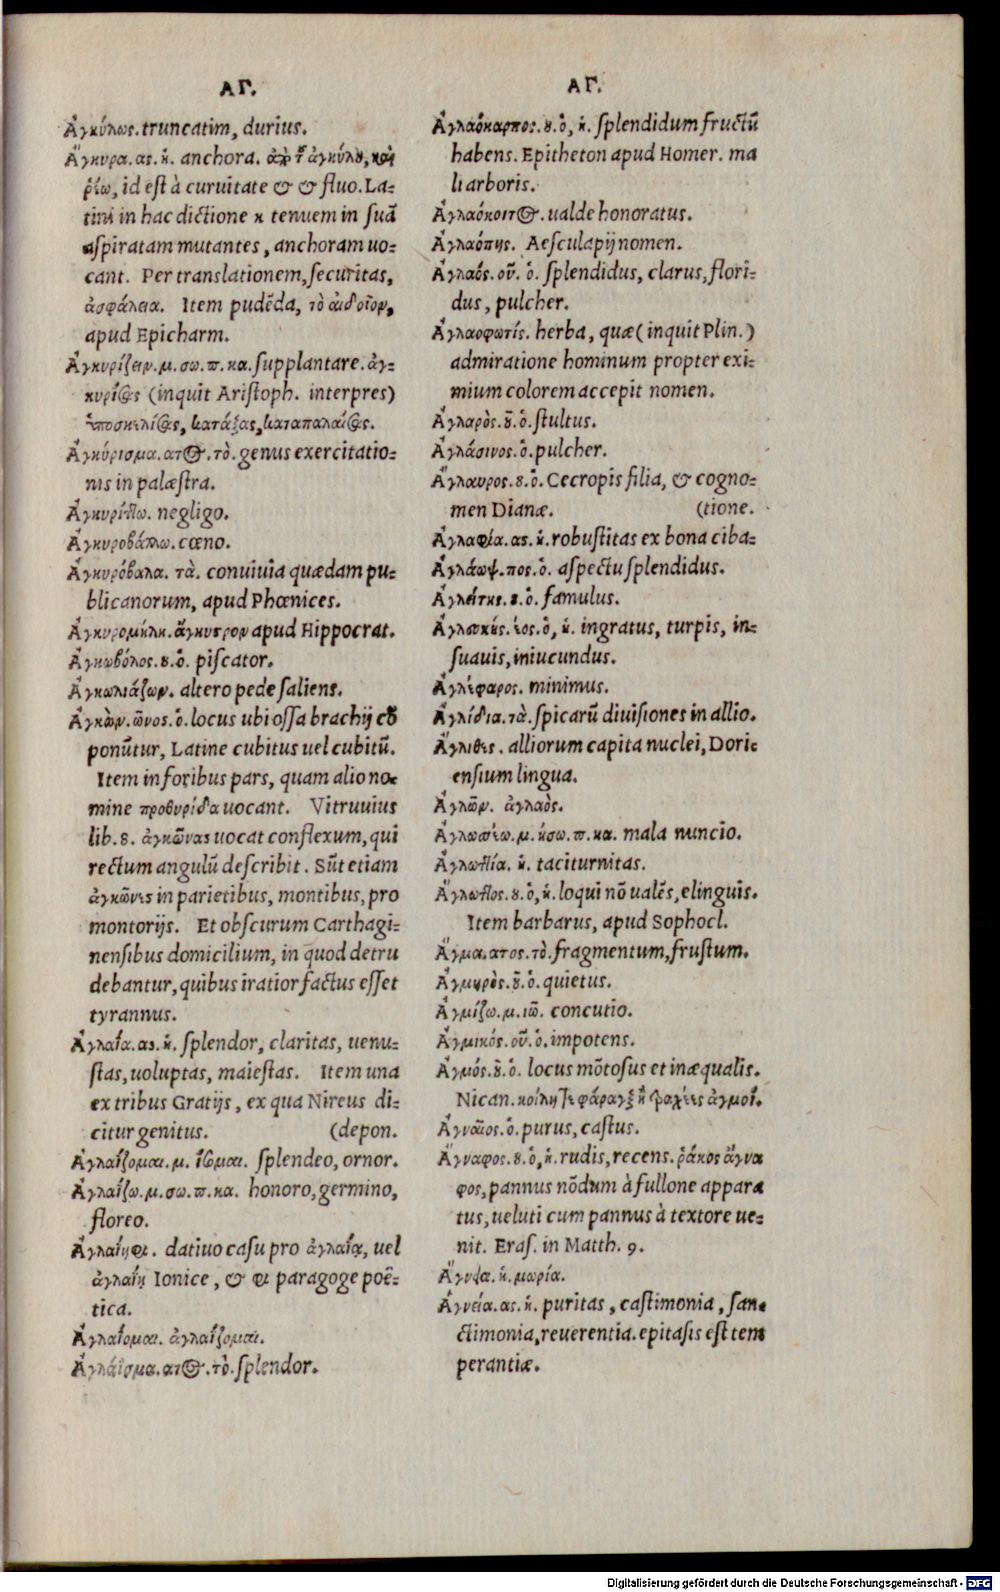 ΑΓ.
Ἀγκύλως. truncatim, durius.
Ἄγκυρα. ας. ἡ. anchora. ἀπὸ τοῦ ἀγκύλου, καὶ
ῥύω, id est à curuitate & & fluo. La-
tini in hac dictione κ tenuem in suā
aspiratam mutantes, anchoram uo-
cant. Per translationem, securitas,
ἀσφάλεια. Item pudēda, τὸ αἰδοῖον,
apud Epicharm.
Ἀγκυρίζειν. μ. σω. π. κα. supplantare. ἀγ-
κυρίσας (inquit Aristoph. interpres)
ὑποσκελίσας, κατάξας, καταπαλαίσας.
Ἀγκύρισμα. ατος. τὸ. genus exercitatio-
nis in palæstra.
Ἀγκυρίπτω. negligo.
Ἀγκυροβάπτω. cœno.
Ἀγκυρόβαλα. τὰ. conuiuia quædam pu-
blicanorum, apud Phœnices.
Ἀγκυρομήλη. ἄγκυτρον apud Hippocrat.
Ἀγκωβόλος. ου. ὁ. piscator.
Ἀγκωλιάζων. altero pede saliens.
Ἀγκὼν. ῶνος. ὁ. locus ubi ossa brachij cō
ponūtur, Latine cubitus uel cubitū.
Item in foribus pars, quam alio no-
mine προθυρίδα uocant. Vitruuius
lib. 8. ἀγκῶνας uocat conflexum, qui
rectum angulū describit. Sūt etiam
ἀγκῶνες in parietibus, montibus, pro
montorijs. Et obscurum Carthagi-
nensibus domicilium, in quod detru
debantur, quibus iratior factus esset
tyrannus.
Ἀγλαΐα. ας. ἡ. splendor, claritas, uenu-
stas, uoluptas, maiestas. Item una
ex tribus Gratijs, ex qua Nireus di-
citur genitus. (depon.
Ἀγλαΐζομαι. μ. ΐσομαι. splendeo, ornor.
Ἀγλαΐζω. μ. σω. π. κα. honoro, germino,
floreo.
Ἀγλαΐηφι. datiuo casu pro ἀγλαΐᾳ, uel
ἀγλαΐῃ Ionice, & φι paragoge poē-
tica.
Ἀγλαΐομαι. ἀγλαΐζομαι.
Ἀγλάϊσμα. ατος. τὸ. splendor.
ΑΓ.
Ἀγλαόκαρπος. ου. ὁ, ἡ. splendidum fructū
habens. Epitheton apud Homer. ma
li arboris.
Ἀγλαόκοιτος. ualde honoratus.
Ἀγλαόπης. Aesculapij nomen.
Ἀγλαός. οῦ. ὁ. splendidus, clarus, flori-
dus, pulcher.
Ἀγλαοφωτίς. herba, quæ (inquit Plin.)
admiratione hominum propter exi-
mium colorem accepit nomen.
Ἀγλαρὸς. οῦ. ὁ. stultus.
Ἀγλάσινος. ὁ. pulcher.
Ἄγλαυρος. ου. ὁ. Cecropis filia, & cogno-
men Dianæ. (tione.
Ἀγλαφία. ας. ἡ. robustitas ex bona ciba-
Ἀγλάωψ. πος. ὁ. aspectu splendidus.
Ἀγλείτης. ου. ὁ. famulus.
Ἀγλευκής. έος. ὁ, ἡ. ingratus, turpis, in-
suauis, iniucundus.
Ἀγλέφαρος. minimus.
Ἀγλίδια. τὰ. spicarū diuisiones in allio.
Ἄγλιθες. alliorum capita nuclei, Dori-
ensium lingua.
Ἀγλῶν. ἀγλαὸς.
Ἀγλωσσέω. μ. ήσω. π. κα. mala nuncio.
Ἀγλωττία. ἡ. taciturnitas.
Ἄγλωττος. ου. ὁ, ἡ. loqui nō ualēs, elinguis.
Item barbarus, apud Sophocl.
Ἄγμα. ατος. τὸ. fragmentum, frustum.
Ἀγμηρὸς. οῦ. ὁ. quietus.
Ἀγμίζω. μ. ιῶ. concutio.
Ἀγμικός. οῦ. ὁ. impotens.
Ἀγμός. οῦ. ὁ. locus mōtosus et inæqualis.
Nican. κοίλη τε φάραγξ ἢ τραχέες ἀγμοί.
Ἀγναῖος. ὁ. purus, castus.
Ἄγναφος. ου. ὁ, ἡ. rudis, recens. ῥάκος ἄγνα
φος, pannus nōdum à fullone appara
tus, ueluti cum pannus à textore ue-
nit. Eras. in Matth. 9.
Ἄγνεα. ἡ. μωρία.
Ἁγνεία. ας. ἡ. puritas, castimonia, san-
ctimonia, reuerentia. epitasis est tem
perantiæ.
Digitalisierung gefördert durch die Deutsche Forschungsgemeinschaft - DFG